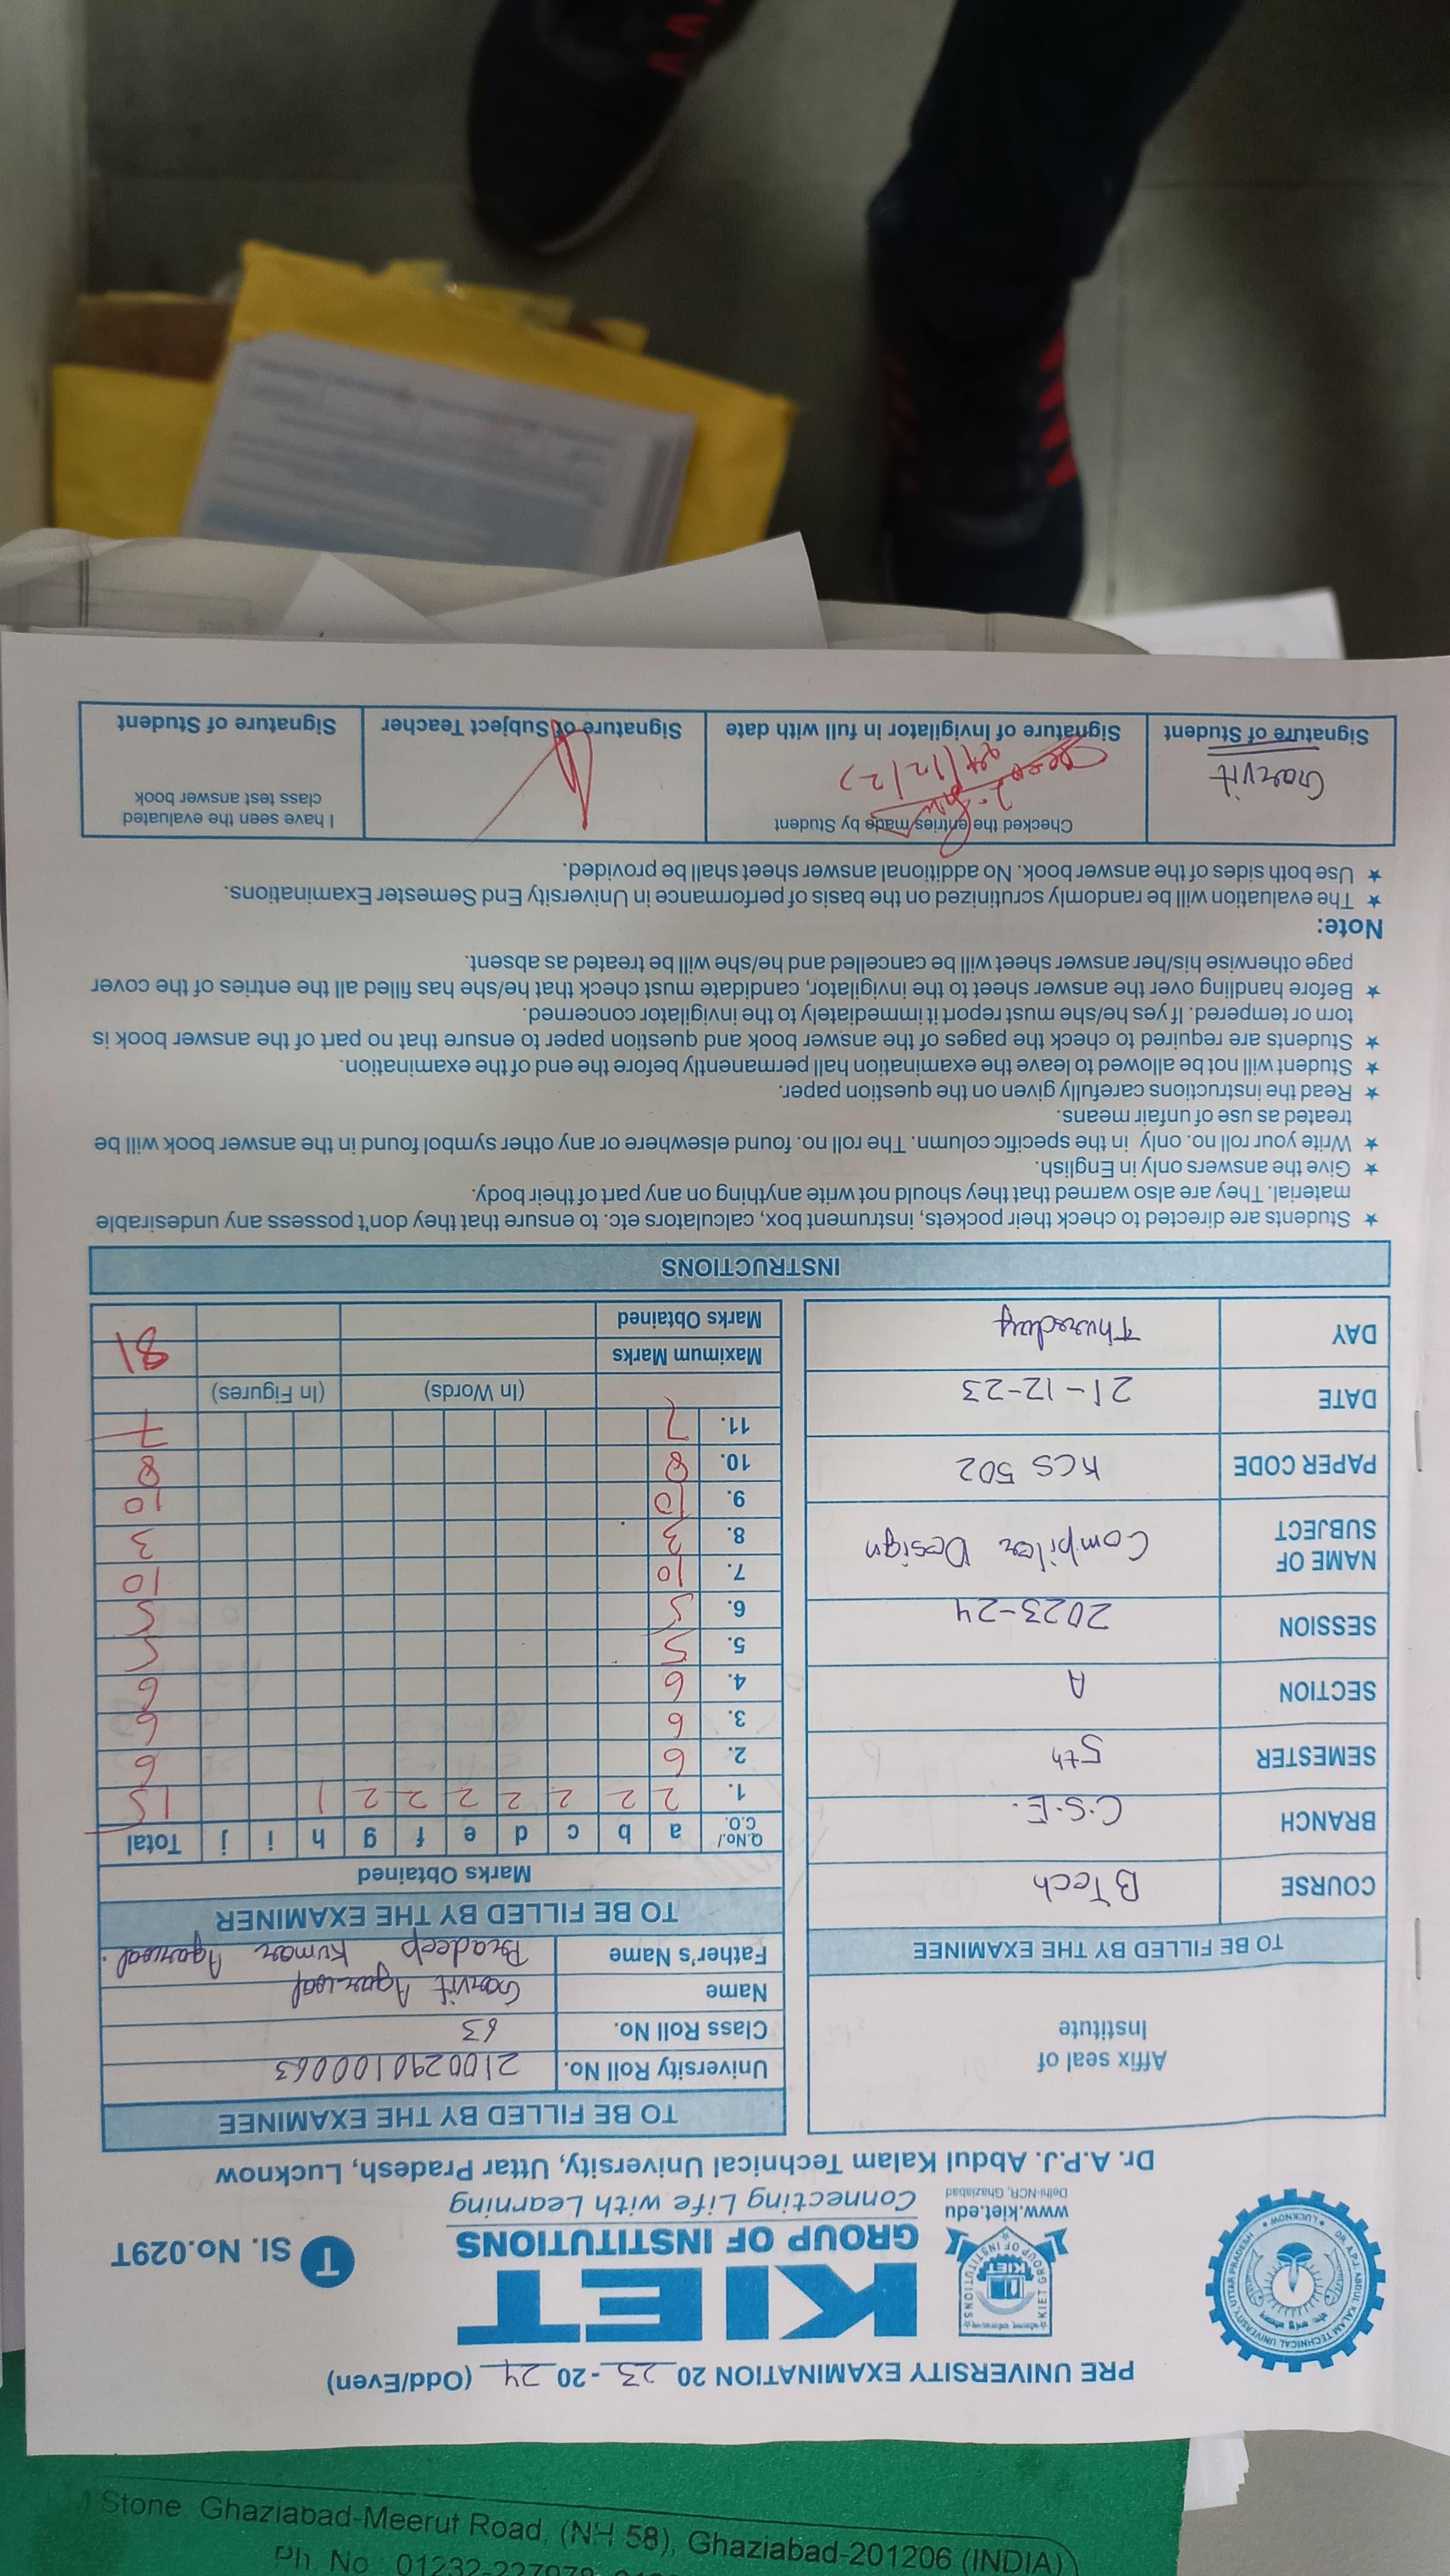 Stone Ghaziabad-Meerut Road, (NH 58), Ghaziabad-201206 (INDIA)
Ph. No. 01232-
PRE UNIVERSITY EXAMINATION 20 23 - 20 24 (Odd/Even)
DR. A.P.J. ABDUL KALAM TECHNICAL UNIVERSITY UTTAR PRADESH
LUCKNOW
KIET GROUP OF INSTITUTIONS
KIET
www.kiet.edu
Delhi-NCR, Ghaziabad
KIET
GROUP OF INSTITUTIONS
Connecting Life with Learning
T Sl. No.029T
Dr. A.P.J. Abdul Kalam Technical University, Uttar Pradesh, Lucknow
Affix seal of
Institute
TO BE FILLED BY THE EXAMINEE
COURSE B Tech
BRANCH C.S.E.
SEMESTER 5th
SECTION A
SESSION 2023-24
NAME OF
SUBJECT Compiler Design
PAPER CODE KCS 502
DATE 21-12-23
DAY Thursday
TO BE FILLED BY THE EXAMINEE
University Roll No. 2100290100063
Class Roll No. 63
Name Garvit Agarwal
Father's Name Pradeep Kumar Agarwal.
TO BE FILLED BY THE EXAMINER
Marks Obtained
Q.No./
C.O. a b c d e f g h i j Total
1. 2 2 2 2 2 2 2 1 15
2. 6 6
3. 6 6
4. 6 6
5. 5 5
6. 5 5
7. 10 10
8. 3 3
9. 10 10
10. 8 8
11. 7 7
(In Words) (In Figures)
Maximum Marks 81
Marks Obtained
INSTRUCTIONS
★ Students are directed to check their pockets, instrument box, calculators etc. to ensure that they don't possess any undesirable
material. They are also warned that they should not write anything on any part of their body.
★ Give the answers only in English.
★ Write your roll no. only in the specific column. The roll no. found elsewhere or any other symbol found in the answer book will be
treated as use of unfair means.
★ Read the instructions carefully given on the question paper.
★ Student will not be allowed to leave the examination hall permanently before the end of the examination.
★ Students are required to check the pages of the answer book and question paper to ensure that no part of the answer book is
torn or tempered. If yes he/she must report it immediately to the invigilator concerned.
★ Before handling over the answer sheet to the invigilator, candidate must check that he/she has filled all the entries of the cover
page otherwise his/her answer sheet will be cancelled and he/she will be treated as absent.
Note:
★ The evaluation will be randomly scrutinized on the basis of performance in University End Semester Examinations.
★ Use both sides of the answer book. No additional answer sheet shall be provided.
Garvit
Signature of Student
Checked the entries made by Student
Signature of Invigilator in full with date
Signature of Subject Teacher
I have seen the evaluated
class test answer book
Signature of Student